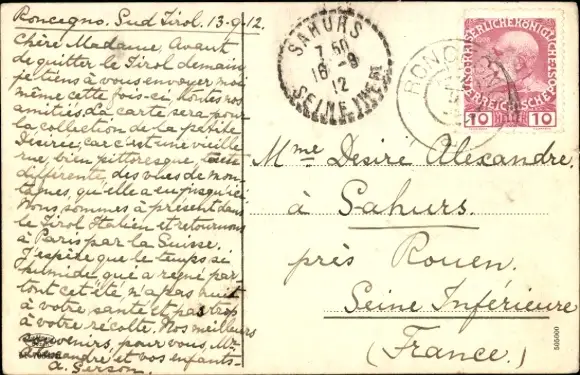 Roncegno. Sud Tirol. 13-9-12.
Chère Madame, Avant
de quitter le Tirol demain
je tiens à vous envoyer moi
même cette fois-ci toutes nos
amitiés. La carte sera pour
la collection de la petite
Desirée, car c'est une vieille
rue, bien pittoresque,
différente, des vues de mon-
tagnes, qu'elle a eu jusqu'ici.
Nous sommes à présent dans
le Tirol Italien et retournons
à Paris par la Suisse.
J'espère que le temps si
humide, qui a regné par-
tout cet été, n'a pas nuit
à votre santé et pas trop
à votre récolte. Nos meilleurs
souvenirs, pour vous, Mr.
Alexandre et vos enfants-
A. Gerson.
SAHURS
7 50
16 -9
12
SEINE INFRE
RONCEGNO
KAISERLICHE KÖNIGLICHE
ÖSTERREICHISCHE POST
10 10
Mme Desiré Alexandre.
à Sahurs.
près Rouen.
Seine Inférieure
(France.)